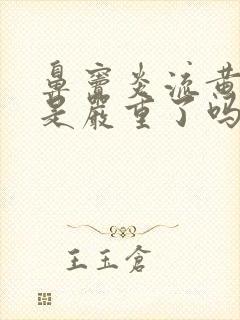 鼻窦炎流黄
是严重了吗
王玉仓